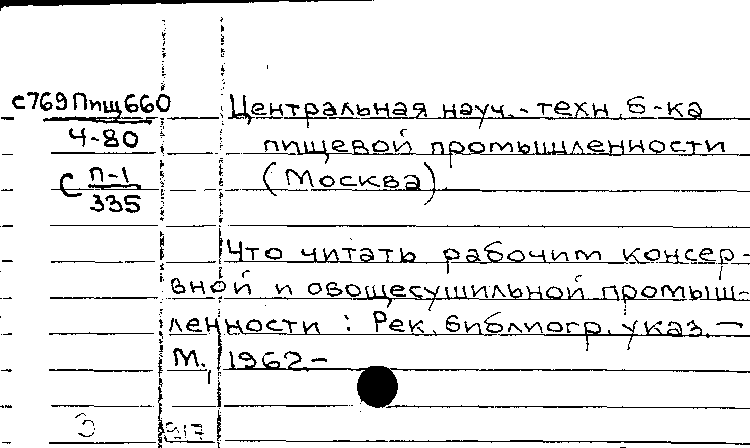 с769Пищ660
Ч-80
С П-1
335
Центральная науч.-техн. б-ка
пищевой промышленности
(Москва).
Что читать рабочим консер-
вной и овощесушильной промыш-
ленности : Рек. библиогр. указ. —
М., 1962.-
3
917